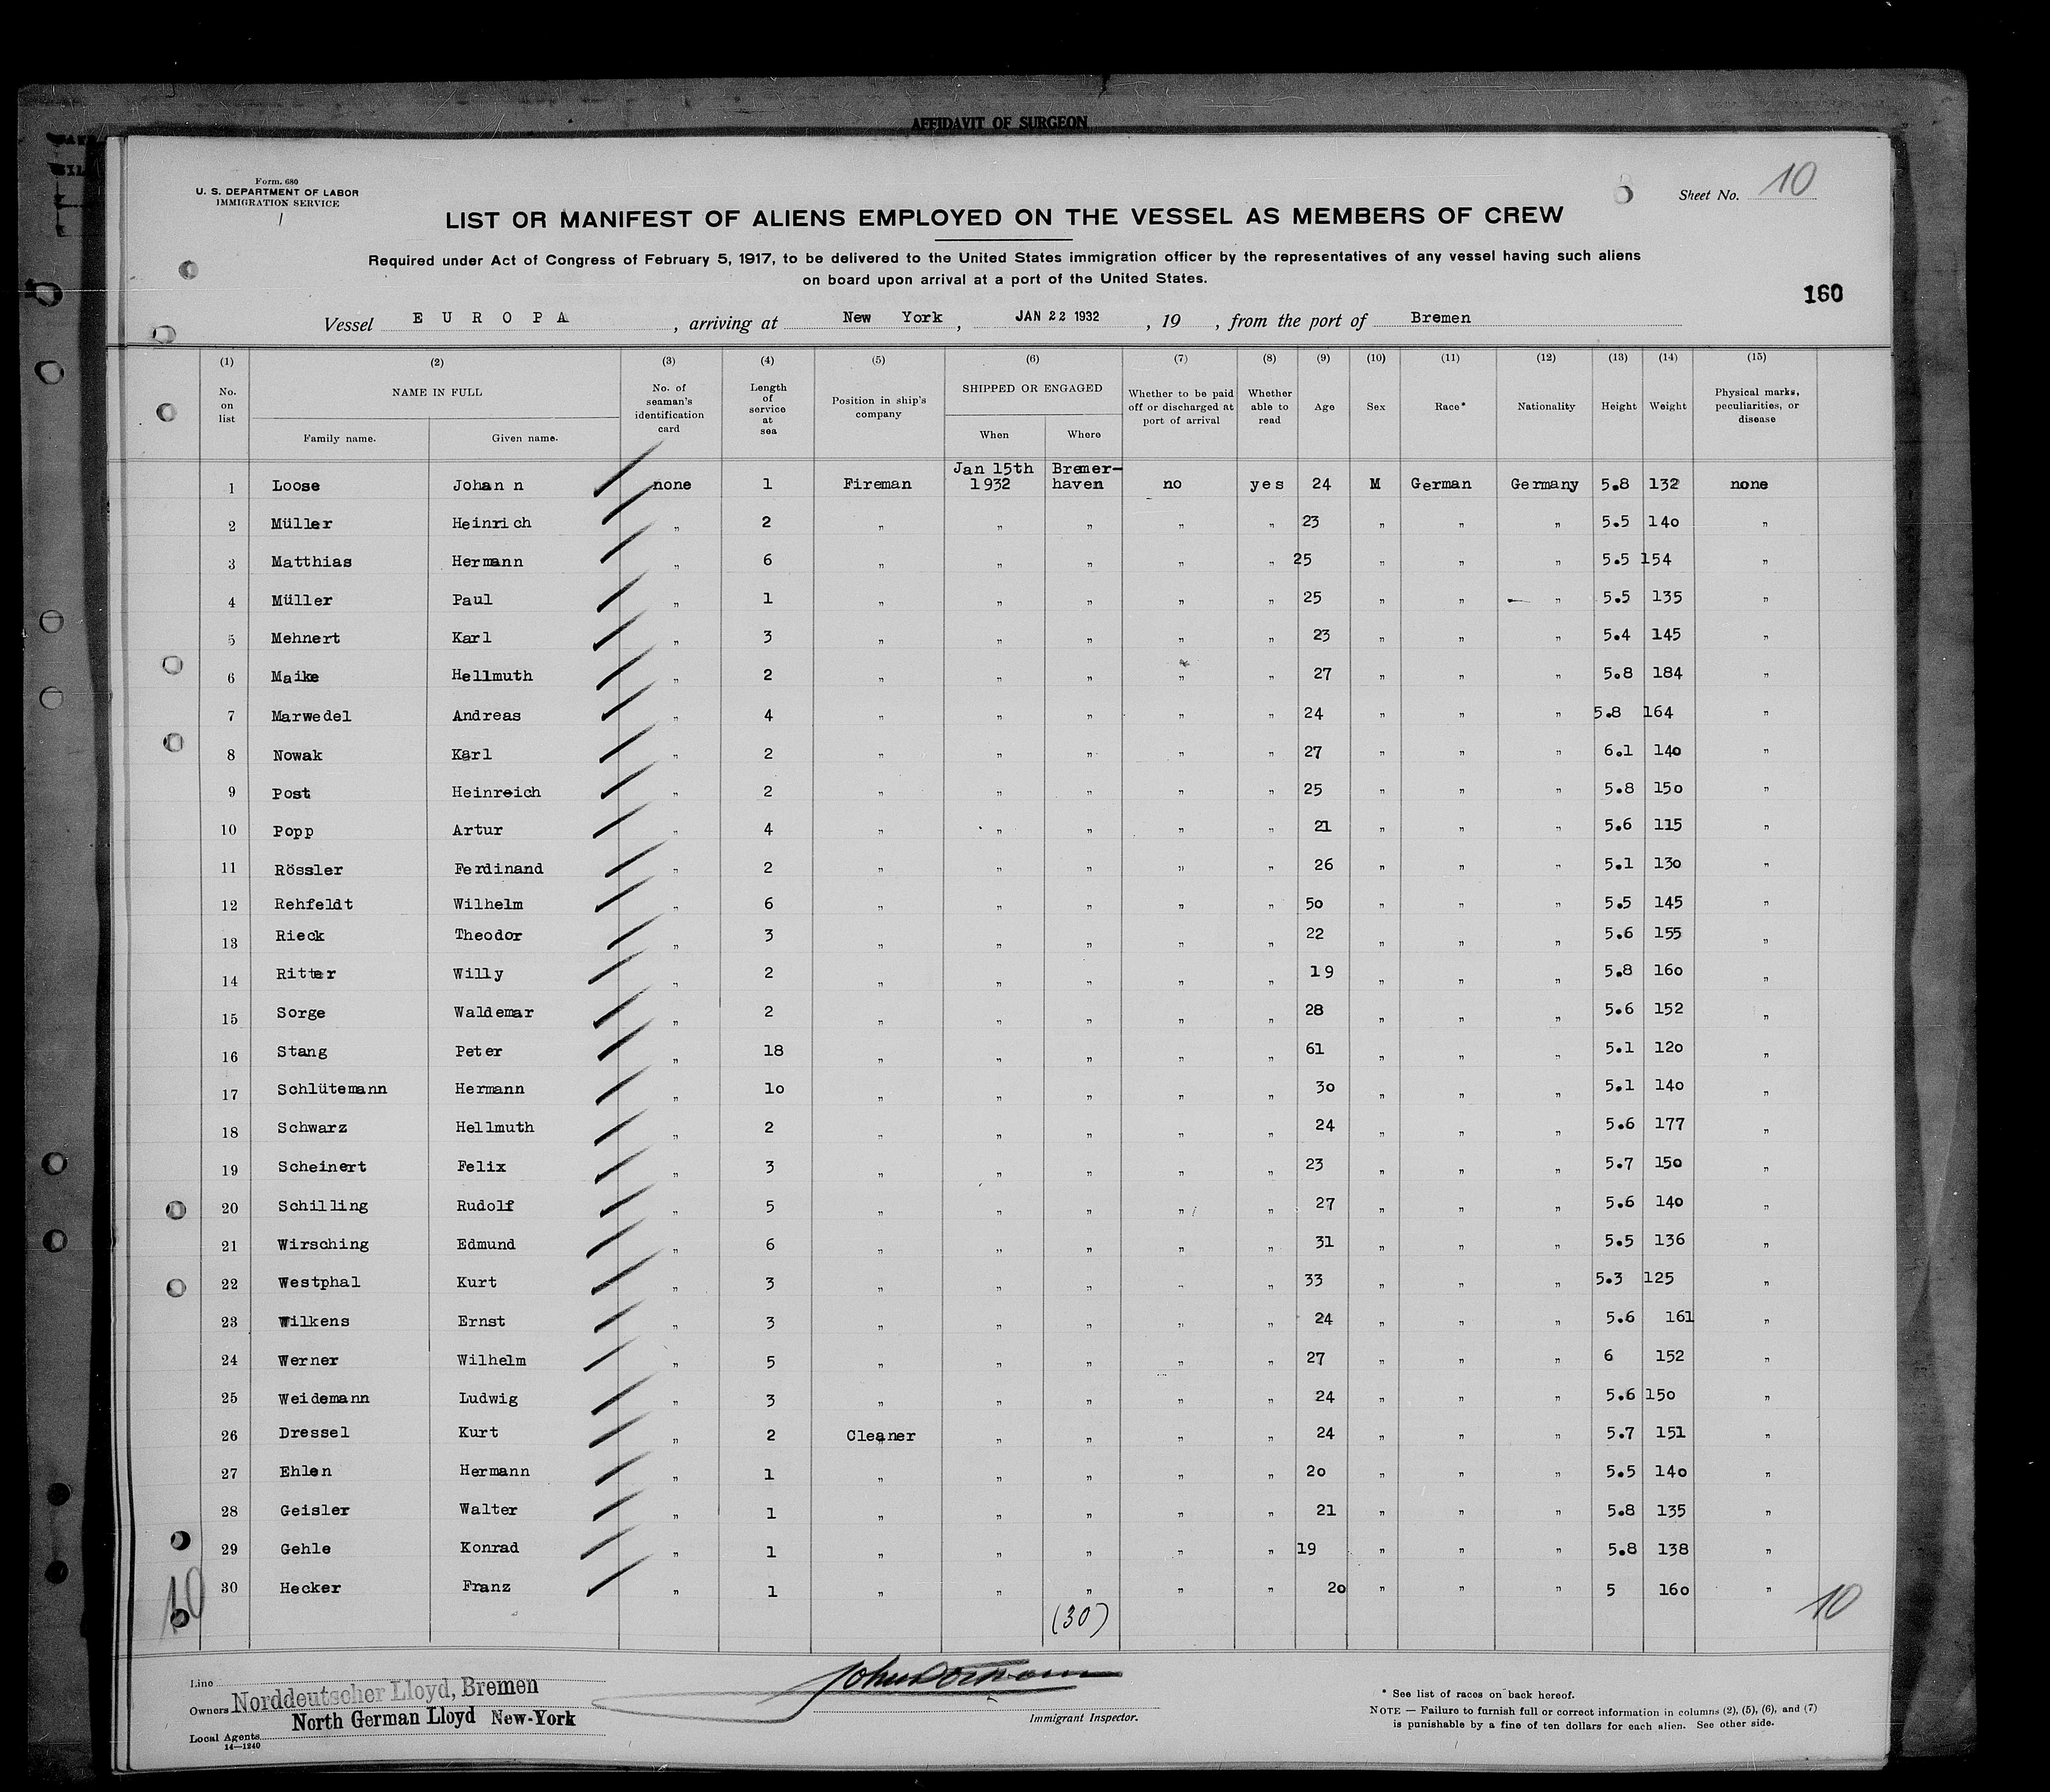 AFFIDAVIT OF SURGEON
Form. 680
U. S. DEPARTMENT OF LABOR
IMMIGRATION SERVICE
Sheet No. 10
LIST OR MANIFEST OF ALIENS EMPLOYED ON THE VESSEL AS MEMBERS OF CREW
Required under Act of Congress of February 5, 1917, to be delivered to the United States immigration officer by the representatives of any vessel having such aliens
on board upon arrival at a port of the United States.
160
Vessel EUROPA, arriving at New York, JAN 22 1932, 19 , from the port of Bremen
(1) (2) (3) (4) (5) (6) (7) (8) (9) (10) (11) (12) (13) (14) (15)
No. on list NAME IN FULL Family name. Given name. No. of seaman's identification card Length of service at sea Position in ship's company SHIPPED OR ENGAGED When Where Whether to be paid off or discharged at port of arrival Whether able to read Age Sex Race* Nationality Height Weight Physical marks, peculiarities, or disease
1 Loose Johann none 1 Fireman Jan 15th 1932 Bremer-haven no yes 24 M German Germany 5.8 132 none
2 Müller Heinrich " 2 " " " " " 23 " " " 5.5 140 "
3 Matthias Hermann " 6 " " " " " 25 " " " 5.5 154 "
4 Müller Paul " 1 " " " " " 25 " " " 5.5 135 "
5 Mehnert Karl " 3 " " " " " 23 " " " 5.4 145 "
6 Maike Hellmuth " 2 " " " " " 27 " " " 5.8 184 "
7 Marwedel Andreas " 4 " " " " " 24 " " " 5.8 164 "
8 Nowak Karl " 2 " " " " " 27 " " " 6.1 140 "
9 Post Heinreich " 2 " " " " " 25 " " " 5.8 150 "
10 Popp Artur " 4 " " " " " 21 " " " 5.6 115 "
11 Rössler Ferdinand " 2 " " " " " 26 " " " 5.1 130 "
12 Rehfeldt Wilhelm " 6 " " " " " 50 " " " 5.5 145 "
13 Rieck Theodor " 3 " " " " " 22 " " " 5.6 155 "
14 Ritter Willy " 2 " " " " " 19 " " " 5.8 160 "
15 Sorge Waldemar " 2 " " " " " 28 " " " 5.6 152 "
16 Stang Peter " 18 " " " " " 61 " " " 5.1 120 "
17 Schlütemann Hermann " 10 " " " " " 30 " " " 5.1 140 "
18 Schwarz Hellmuth " 2 " " " " " 24 " " " 5.6 177 "
19 Scheinert Felix " 3 " " " " " 23 " " " 5.7 150 "
20 Schilling Rudolf " 5 " " " " " 27 " " " 5.6 140 "
21 Wirsching Edmund " 6 " " " " " 31 " " " 5.5 136 "
22 Westphal Kurt " 3 " " " " " 33 " " " 5.3 125 "
23 Wilkens Ernst " 3 " " " " " 24 " " " 5.6 161 "
24 Werner Wilhelm " 5 " " " " " 27 " " " 6 152 "
25 Weidemann Ludwig " 3 " " " " " 24 " " " 5.6 150 "
26 Dressel Kurt " 2 Cleaner " " " " 24 " " " 5.7 151 "
27 Ehlen Hermann " 1 " " " " " 20 " " " 5.5 140 "
28 Geisler Walter " 1 " " " " " 21 " " " 5.8 135 "
29 Gehle Konrad " 1 " " " " " 19 " " " 5.8 138 "
30 Hecker Franz " 1 " " " " " 20 " " " 5 160 "
10 (30) 10
Line
Owners Norddeutscher Lloyd, Bremen
North German Lloyd New-York
Local Agents
14—1240
Immigrant Inspector.
* See list of races on back hereof.
NOTE — Failure to furnish full or correct information in columns (2), (5), (6), and (7)
is punishable by a fine of ten dollars for each alien. See other side.